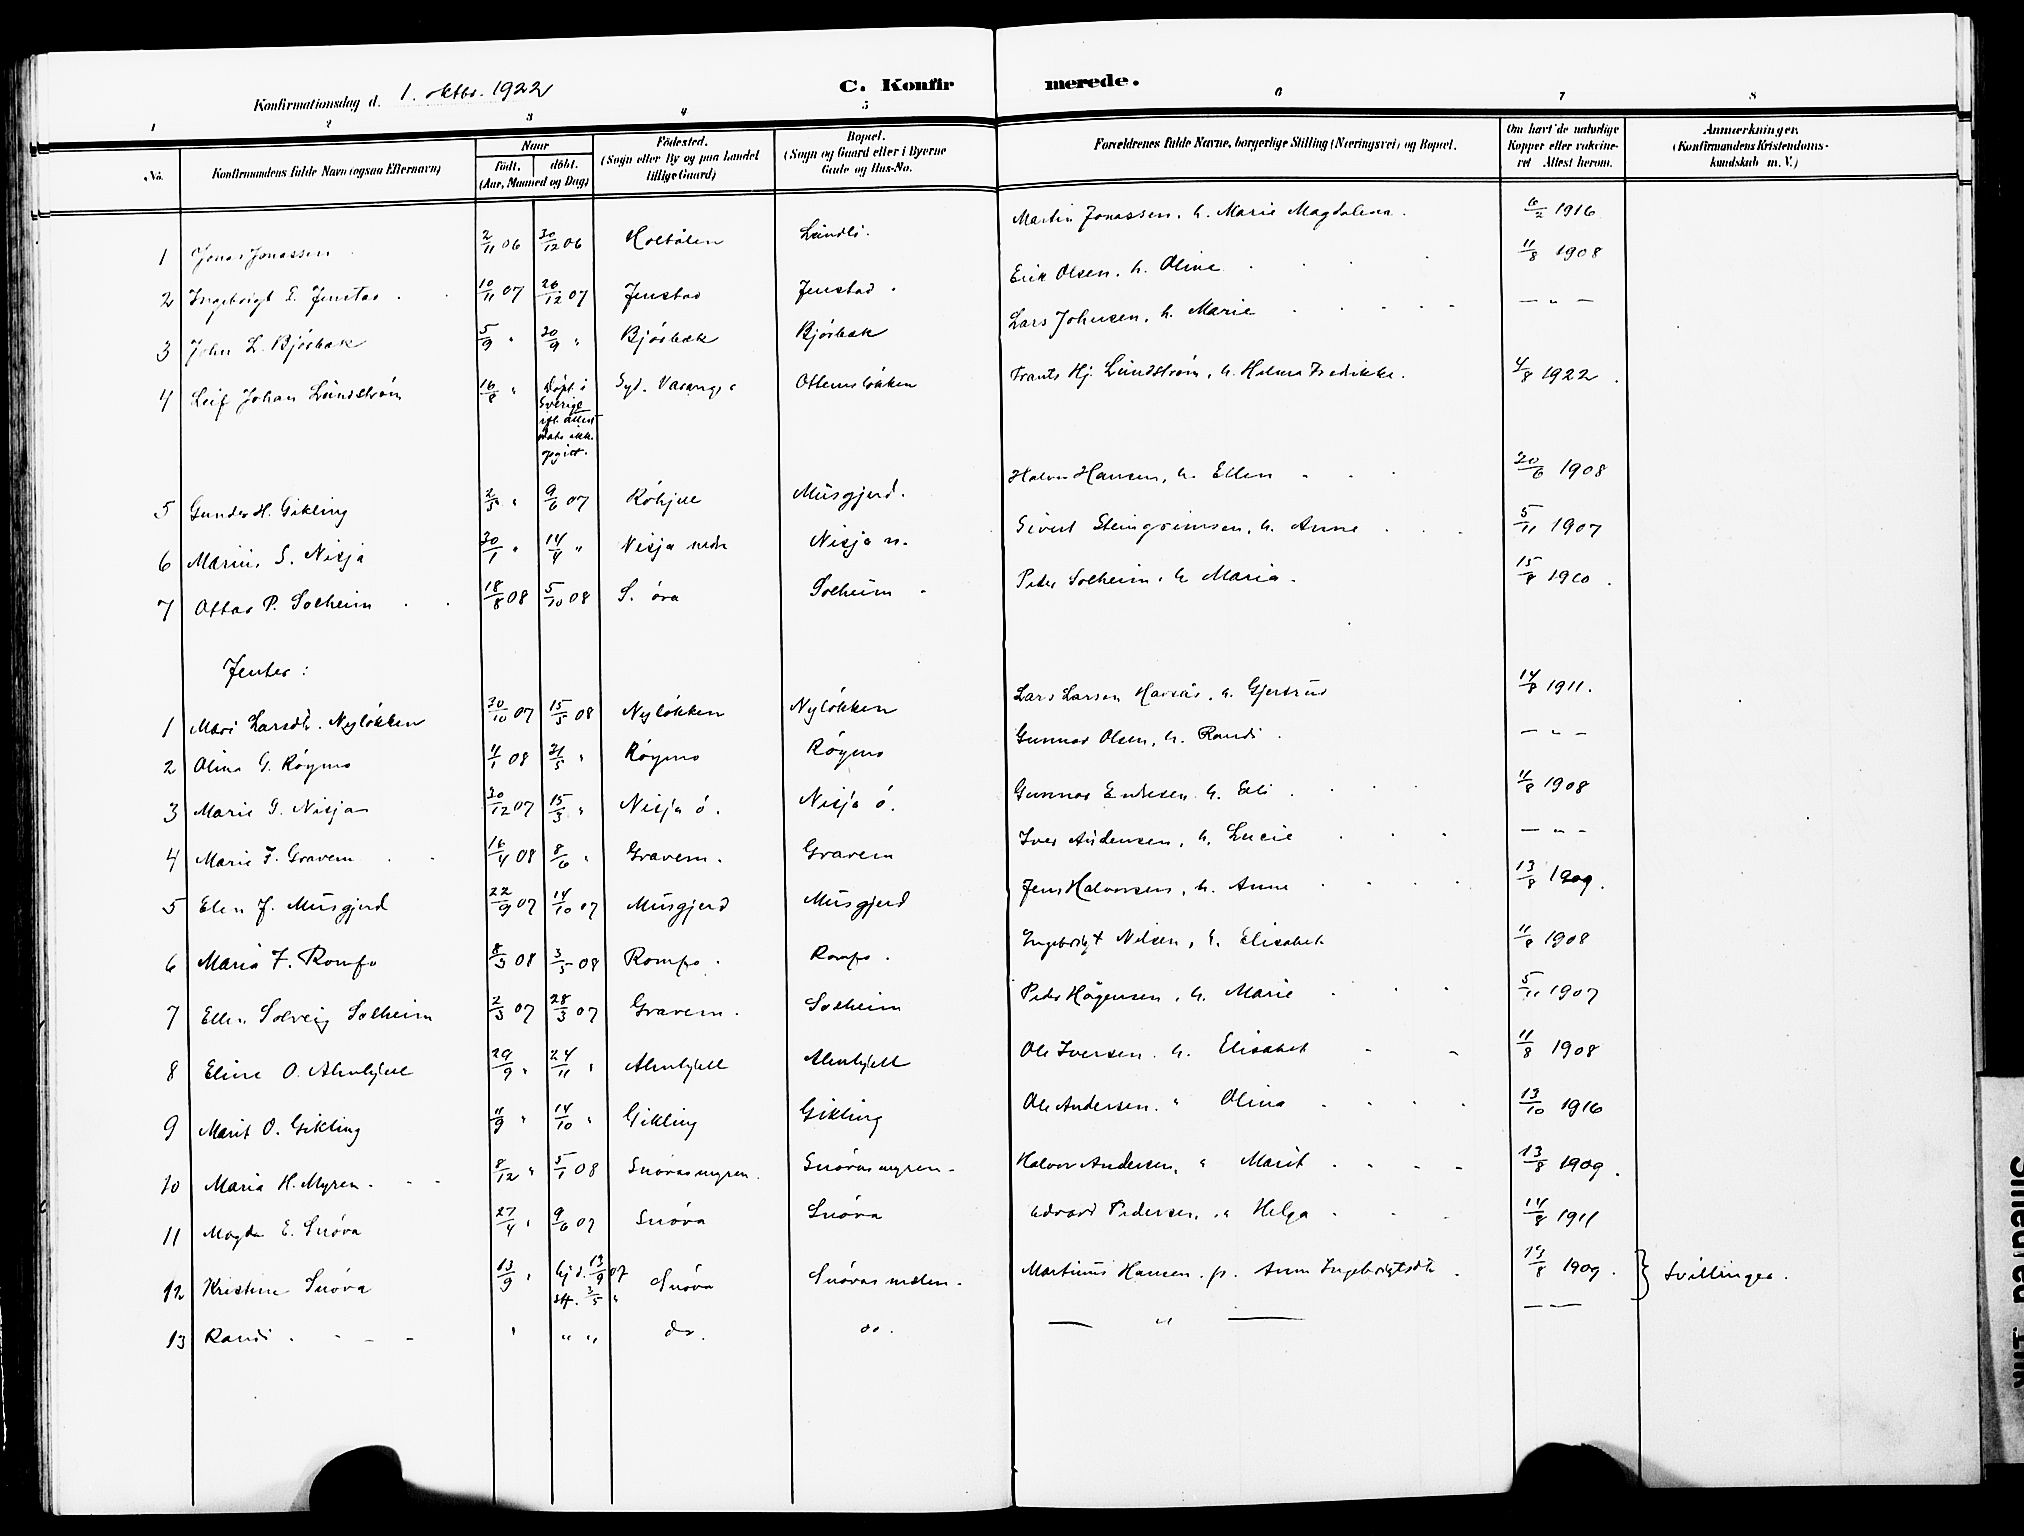 C. Konfirmerede.
Konfirmationsdag d. 1. oktbr. 1922
1 2 3 4 5 6 7 8
No. Konfirmandens fulde Navn (ogsaa Efternavn) Naar født, døbt. (Aar, Maaned og Dag) Fødested. (Sogn eller By og paa Landet tillige Gaard) Bopæl. (Sogn og Gaard eller i Byerne Gade og Hus-No. Forældrenes fulde Navne, borgerlige Stilling (Næringsvei) og Bopæl. Om havt de naturlige Kopper eller vaccineret Attest herom. Anmærkninger. (Konfirmandens Kristendomskundskab m. V.)
1 Jonas Jonassen 2/11 06 30/12 06 Holtålen Lundli. Martin Jonassen, h. Marie Magdalena. 6/2 1916
2 Ingebrigt E. Jenstad 10/11 07 26/12 07 Jenstad Jenstad Erik Olsen, h. Oline 11/8 1908
3 John L. Bjørbæk 5/9 " 20/9 " Bjørbæk Bjørbæk Lars Johnsen, h. Marie — " —
4 Leif Johan Lundstrøm 16/8 " Døpt i Sverige ifl. attest Syd. Varanger Ottemsløkken Frants Hj. Lundstrøm, h. Fredrikke. 4/8 1922
5 Gunder H. Gikling 2/3 " 9/6 07 Musgjerd. Halvor Hansen, h. Ellen 30/6 1908
6 Marius S. Nisja 30/1 " 14/4 " Nisja nedre Nisja n. Sivert Steingrimsen, h. Anne 5/11 1907
7 Ottar P. Solheim 18/8 08 5/10 08 S. øra Solheim Peder Solheim, h. Maria 15/8 1910
Jenter:
1 Mari Larsdtr. Nyløkken 30/10 07 15/3 08 Nyløkken Nyløkken Lars Larsen h. Gjertrud 14/8 1911.
2 Olina G. Røymo 4/1 08 " Røymo Røymo Gunnar Olsen, h. Randi — " —
3 Marie G. Nisja 30/12 07 15/3 " Nisja ø. Nisja ø. Gunnar Endresen h. Eli 11/8 1908
4 Marie I. Gravem 16/4 08 8/6 " Gravem. Gravem Iver Andersen, h. Lucie — " —
5 Elen J. Musgjerd 22/9 07 14/10 07 Musgjerd Musgjerd Jens Halvorsen, h. Anne 13/8 1909.
6 Maria I. Romfo 8/3 08 3/5 08 Romfo. Romfo. Ingebrigt Nilsen, h. Elisabet 11/8 1908
7 Ellen Solveig Solheim 2/3 07 28/3 07 Gravem. Solheim Peder Hågensen, h. Marie 5/11 1907
8 Eline O. Almhjell 29/9 " 24/11 " Almhjell Almhjell Ole Iversen h. Elisabet 11/8 1908
9 Marit O. Gikling 11/9 " 14/10 " Gikling Gikling Ole Andersen " Olina 13/10 1916
10 Maria H. Myren 8/12 " 5/1 08 Snøvasmyren. Snøvasmyren Halvor Andersen, " Marit 13/8 1909.
11 Magda E. Snøva 27/4 " 9/6 07 Snøva Snøva Edvard Pedersen, " Helga 14/8 1911
12 Kristine Snøva 13/9 " hjd. 13/9 07 Snøva Snøvasmelen. Martinus Hansen. p. Anne Ingebrigtsdtr. 13/8 1909. } tvillinger.
13 Randi " " " do. do. — " — — —